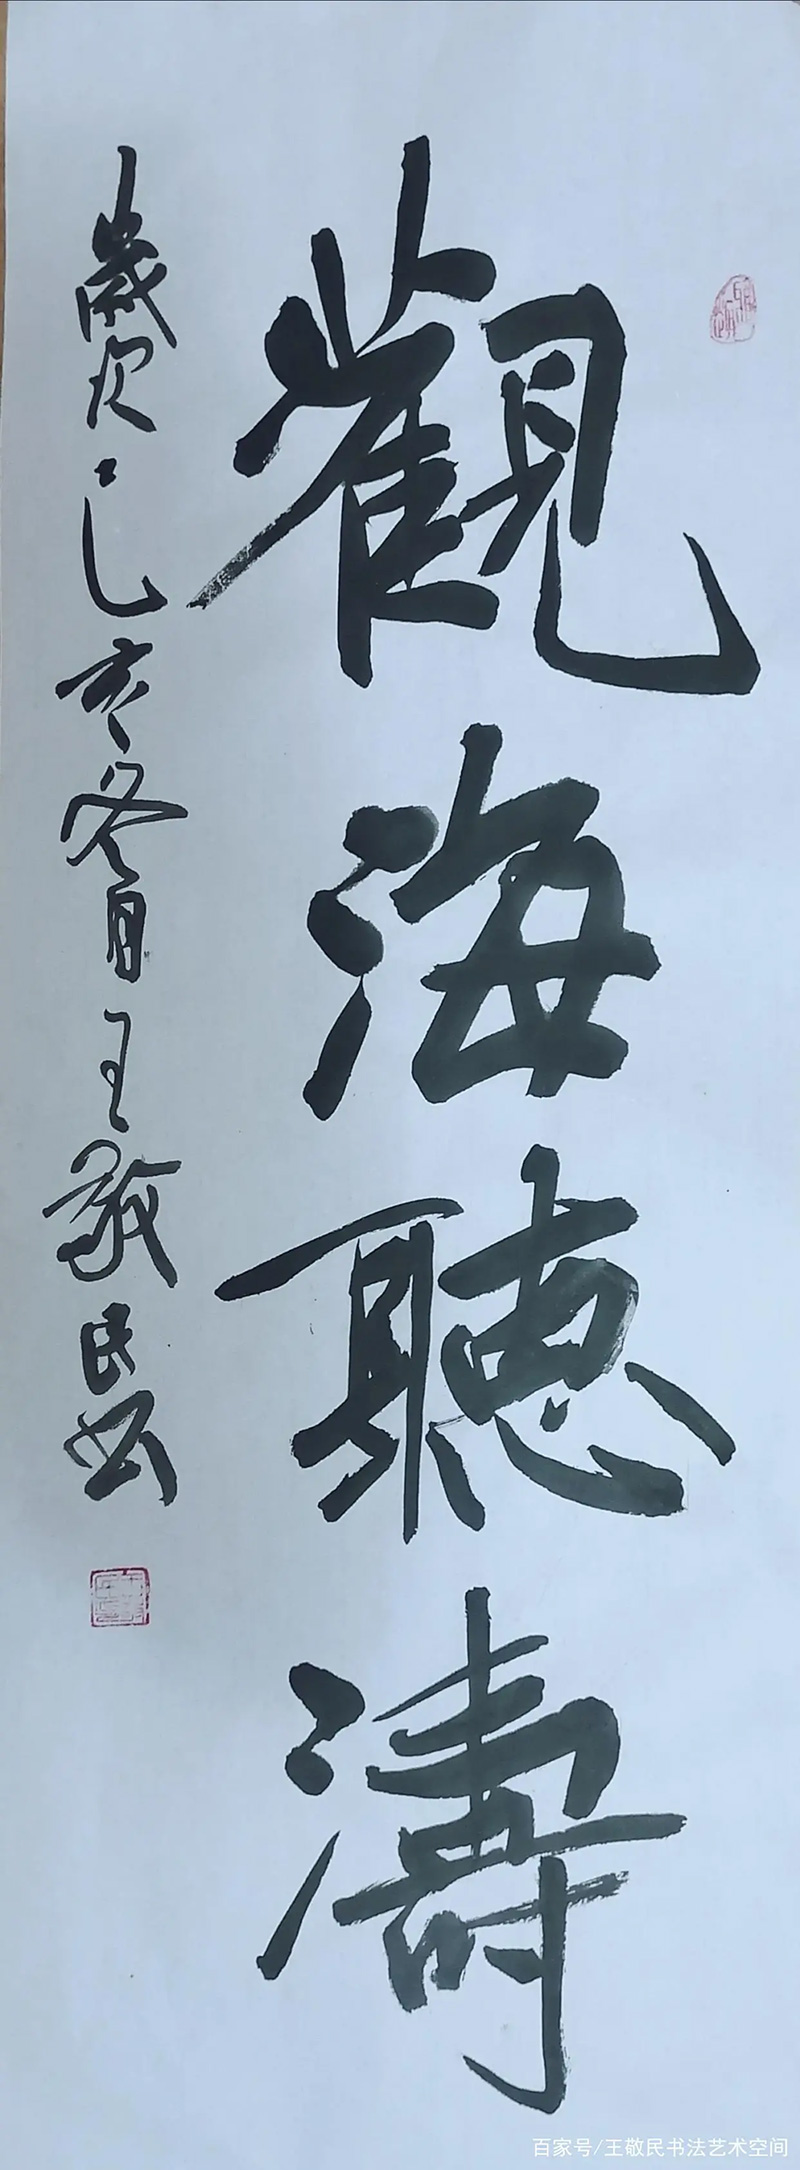 觀海聽濤
歲次己亥冬月王敬民书
百家号/王敬民书法艺术空间